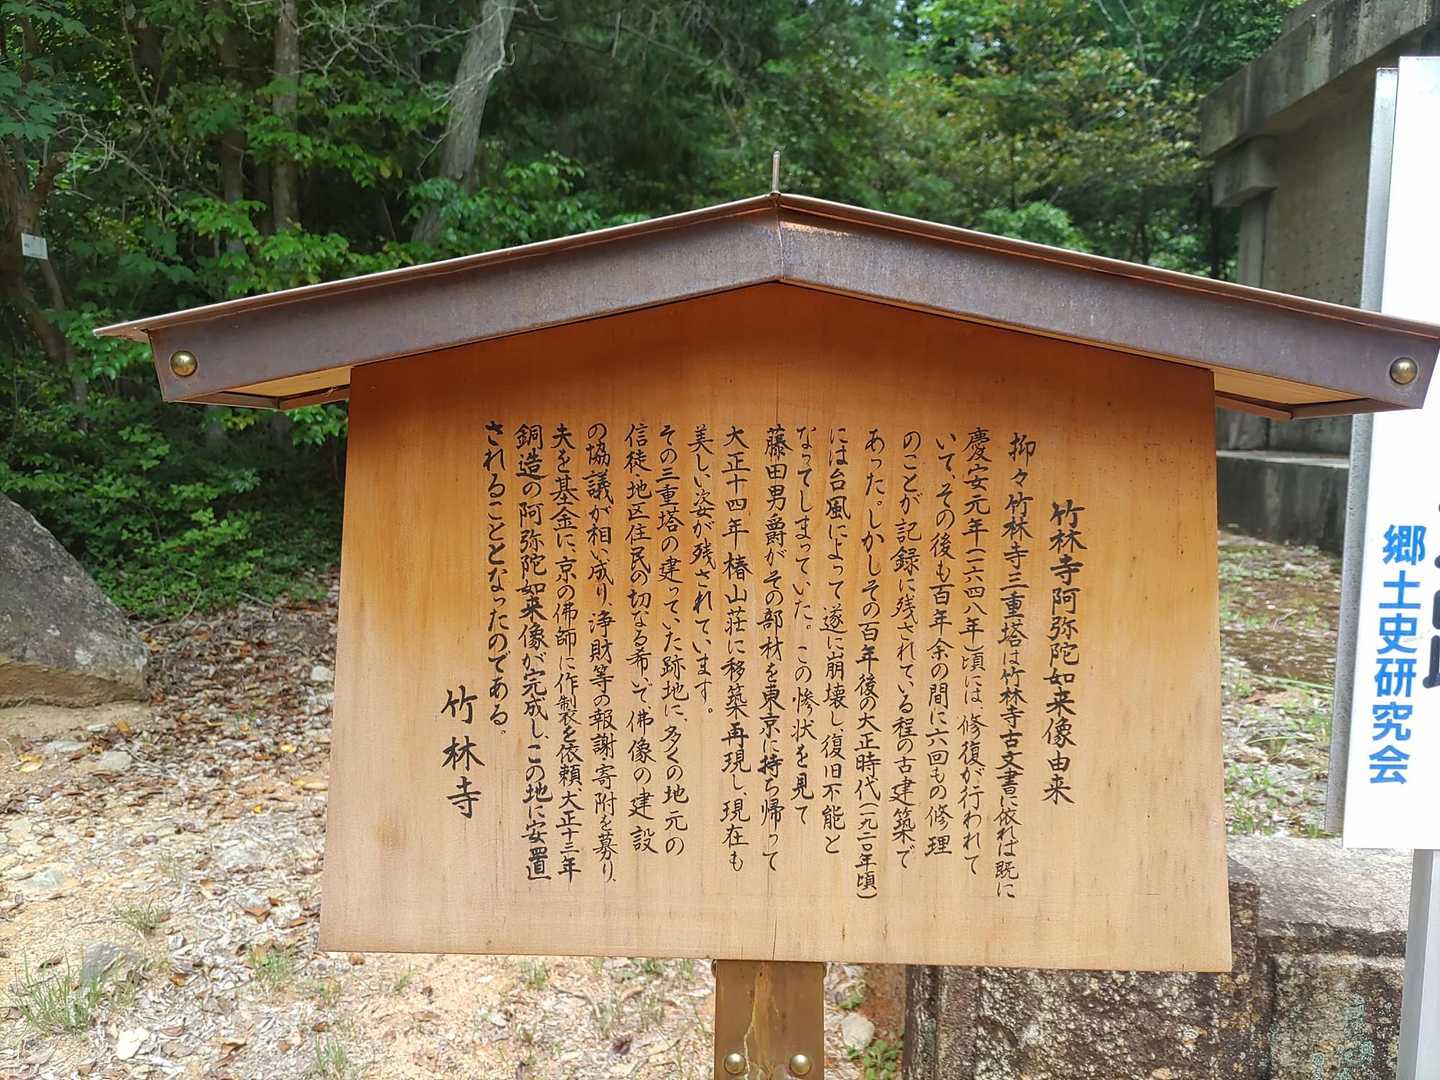 竹林寺阿弥陀如来像由来
抑々竹林寺三重塔は竹林寺古文書に依れば既に
慶安元年(一六四八年)頃には、修復が行われて
いて、その後も百年余の間に六回もの修理
のことが記録に残されている程の古建築で
あった。しかしその百年後の大正時代(一九二〇年頃)
には台風によって遂に崩壊し、復旧不能と
なってしまっていた。この惨状を見て
藤田男爵がその部材を東京に持ち帰って
大正十四年椿山荘に移築再現し、現在も
美しい姿が残されています。
その三重塔の建っていた跡地に、多くの地元の
信徒、地区住民の切なる希いで、佛像の建設
の協議が相い成り、浄財等の報謝寄附を募り、
夫を基金に、京の佛師に作製を依頼、大正十三年
銅造の阿弥陀如来像が完成し、この地に安置
されることとなったのである。
竹林寺
郷土史研究会